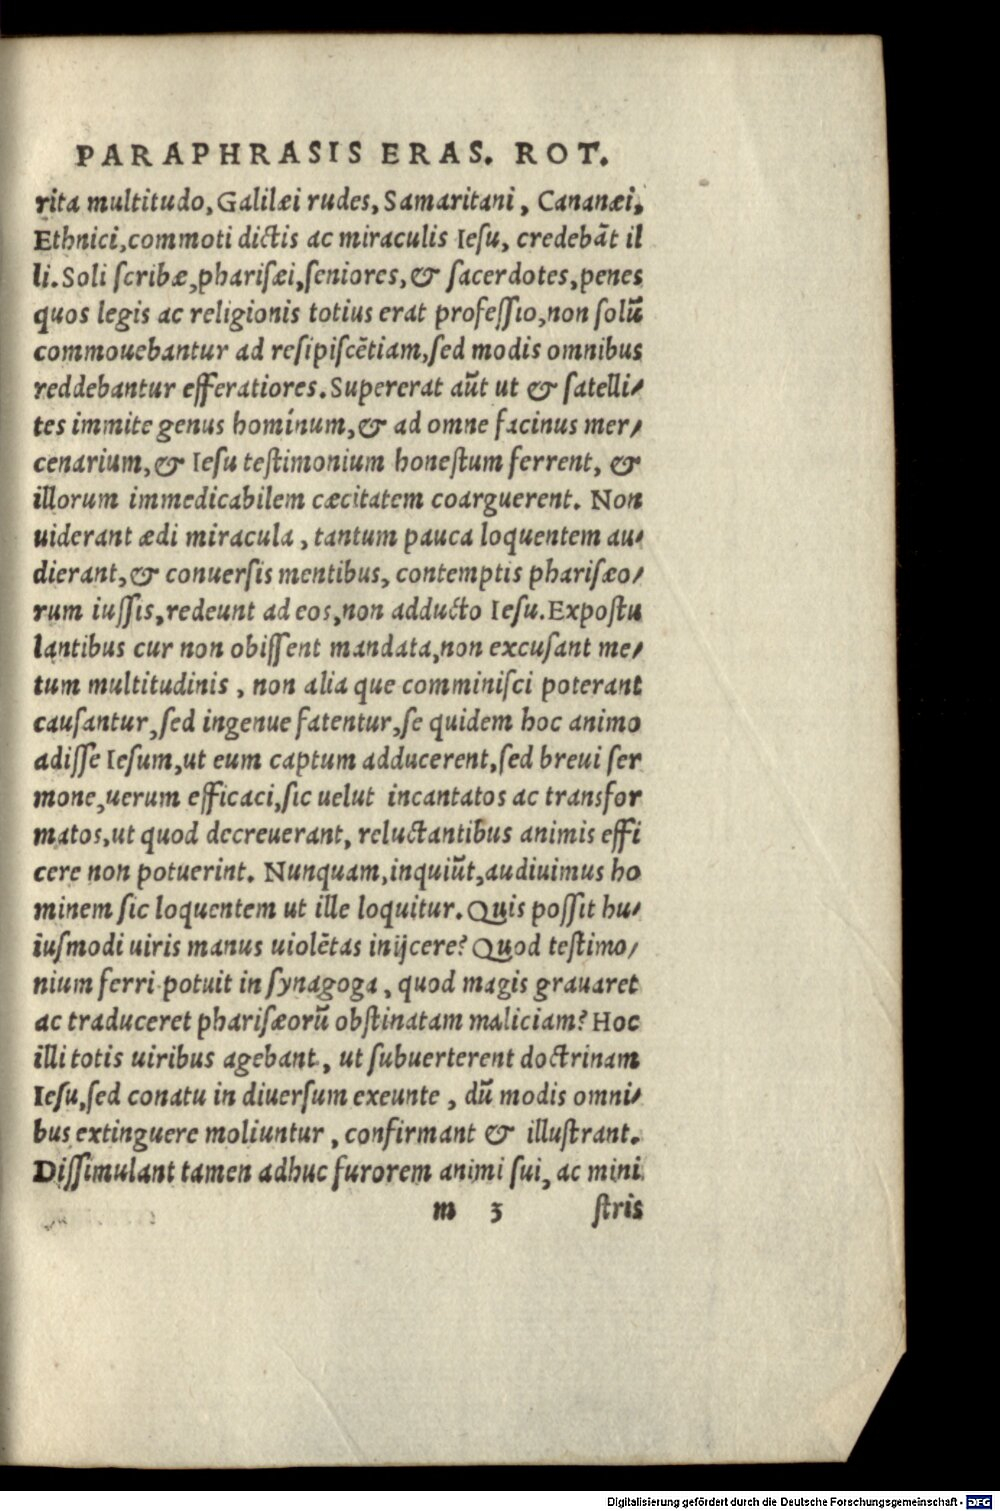 PARAPHRASIS ERAS. ROT.
rita multitudo, Galilæi rudes, Samaritani, Cananæi,
Ethnici, commoti dictis ac miraculis Iesu, credebāt il
li. Soli ſcribæ, phariſæi, ſeniores, & ſacerdotes, penes
quos legis ac religionis totius erat profeſſio, non ſolū
commouebantur ad reſipiſcētiam, ſed modis omnibus
reddebantur efferatiores. Supererat aūt ut & ſatelli/
tes immite genus homínum, & ad omne facinus mer/
cenarium, & Ieſu teſtimonium honeſtum ferrent, &
illorum immedicabilem cæcitatem coarguerent. Non
uiderant ædi miracula, tantum pauca loquentem au/
dierant, & conuerſis mentibus, contemptis phariſæo/
rum iuſſis, redeunt ad eos, non adducto Ieſu. Expoſtu
lantibus cur non obiſſent mandata, non excuſant me/
tum multitudinis, non alia que comminiſci poterant
cauſantur, ſed ingenue fatentur, ſe quidem hoc animo
adiſſe Ieſum, ut eum captum adducerent, ſed breui ſer
mone, uerum efficaci, ſic uelut incantatos ac transfor
matos, ut quod decreuerant, reluctantibus animis effi
cere non potuerint. Nunquam, inquiūt, audiuimus ho
minem ſic loquentem ut ille loquitur. Quis poſſit hu/
iuſmodi uiris manus uiolētas inijcere? Quod teſtimo/
nium ferri potuit in ſynagoga, quod magis grauaret
ac traduceret phariſæorū obſtinatam maliciam? Hoc
illi totis uiribus agebant, ut ſubuerterent doctrinam
Ieſu, ſed conatu in diuerſum exeunte, dū modis omni/
bus extinguere moliuntur, confirmant & illuſtrant.
Diſſimulant tamen adhuc furorem animi ſui, ac mini
m 3 ſtris
Digitalisierung gefördert durch die Deutsche Forschungsgemeinschaft - DFG